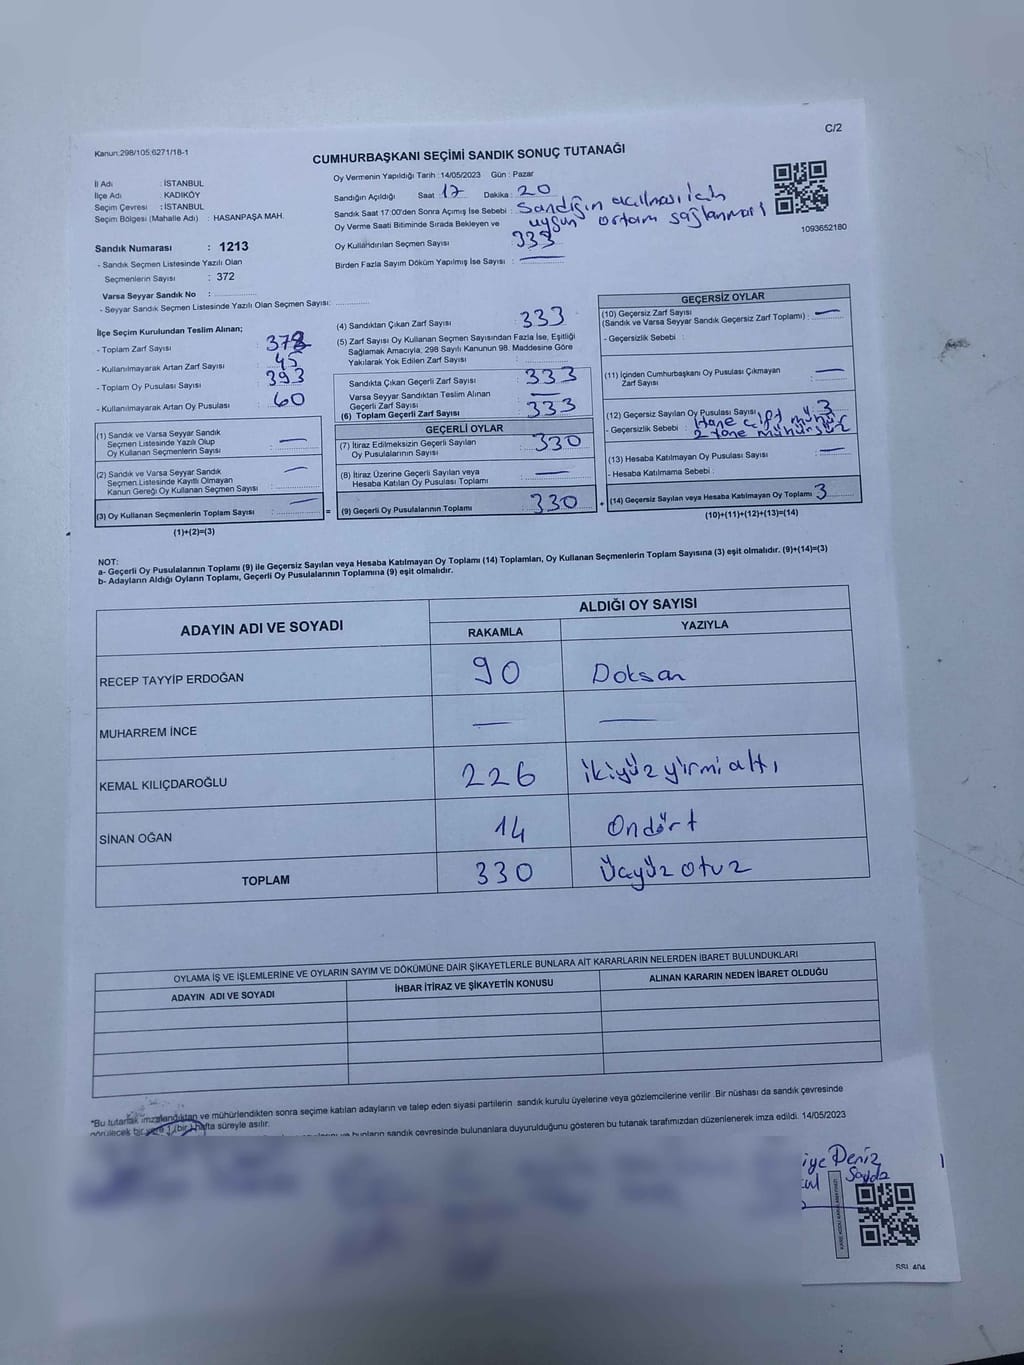 C/2
Kanun:298/105;6271/18-1
CUMHURBAŞKANI SEÇİMİ SANDIK SONUÇ TUTANAĞI
İl Adı : İSTANBUL
İlçe Adı : KADIKÖY
Seçim Çevresi : İSTANBUL
Seçim Bölgesi (Mahalle Adı) : HASANPAŞA MAH.
Sandık Numarası : 1213
- Sandık Seçmen Listesinde Yazılı Olan
Seçmenlerin Sayısı : 372
Varsa Seyyar Sandık No :
- Seyyar Sandık Seçmen Listesinde Yazılı Olan Seçmen Sayısı:
Oy Vermenin Yapıldığı Tarih : 14/05/2023 Gün : Pazar
Sandığın Açıldığı Saat : 17 Dakika : 20
Sandık Saat 17:00'den Sonra Açımış İse Sebebi : Sandığın açılması için
Oy Verme Saati Bitiminde Sırada Bekleyen ve uygun ortam sağlanması
Oy Kullandırılan Seçmen Sayısı 333
Birden Fazla Sayım Döküm Yapılmış İse Sayısı : —
1093652180
İlçe Seçim Kurulundan Teslim Alınan;
- Toplam Zarf Sayısı : 378
- Kullanılmayarak Artan Zarf Sayısı : 45
- Toplam Oy Pusulası Sayısı : 393
- Kullanılmayarak Artan Oy Pusulası : 60
(1) Sandık ve Varsa Seyyar Sandık
Seçmen Listesinde Yazılı Olup
Oy Kullanan Seçmenlerin Sayısı : —
(2) Sandık ve Varsa Seyyar Sandık
Seçmen Listesinde Kayıtlı Olmayan
Kanun Gereği Oy Kullanan Seçmen Sayısı : —
(3) Oy Kullanan Seçmenlerin Toplam Sayısı : —
(1)+(2)=(3)
(4) Sandıktan Çıkan Zarf Sayısı : 333
(5) Zarf Sayısı Oy Kullanan Seçmen Sayısından Fazla İse, Eşitliği
Sağlamak Amacıyla, 298 Sayılı Kanunun 98. Maddesine Göre
Yakılarak Yok Edilen Zarf Sayısı :
Sandıkta Çıkan Geçerli Zarf Sayısı : 333
Varsa Seyyar Sandıktan Teslim Alınan
Geçerli Zarf Sayısı : —
(6) Toplam Geçerli Zarf Sayısı : 333
GEÇERLİ OYLAR
(7) İtiraz Edilmeksizin Geçerli Sayılan
Oy Pusulalarının Sayısı : 330
(8) İtiraz Üzerine Geçerli Sayılan veya
Hesaba Katılan Oy Pusulası Toplamı : —
(9) Geçerli Oy Pusulalarının Toplamı : 330
GEÇERSİZ OYLAR
(10) Geçersiz Zarf Sayısı
(Sandık ve Varsa Seyyar Sandık Geçersiz Zarf Toplamı) : —
- Geçersizlik Sebebi :
(11) İçinden Cumhurbaşkanı Oy Pusulası Çıkmayan
Zarf Sayısı : —
(12) Geçersiz Sayılan Oy Pusulası Sayısı : 3
- Geçersizlik Sebebi : 1 tane çift mühür
2 tane mühürsüz
(13) Hesaba Katılmayan Oy Pusulası Sayısı : —
- Hesaba Katılmama Sebebi :
(14) Geçersiz Sayılan veya Hesaba Katılmayan Oy Toplamı : 3
(10)+(11)+(12)+(13)=(14)
NOT:
a- Geçerli Oy Pusulalarının Toplamı (9) ile Geçersiz Sayılan veya Hesaba Katılmayan Oy Toplamı (14) Toplamları, Oy Kullanan Seçmenlerin Toplam Sayısına (3) eşit olmalıdır. (9)+(14)=(3)
b- Adayların Aldığı Oyların Toplamı, Geçerli Oy Pusulalarının Toplamına (9) eşit olmalıdır.
ADAYIN ADI VE SOYADI ALDIĞI OY SAYISI
RAKAMLA YAZIYLA
RECEP TAYYİP ERDOĞAN 90 Doksan
MUHARREM İNCE — —
KEMAL KILIÇDAROĞLU 226 ikiyüz yirmi altı
SİNAN OĞAN 14 Ondört
TOPLAM 330 Üçyüz otuz
OYLAMA İŞ VE İŞLEMLERİNE VE OYLARIN SAYIM VE DÖKÜMÜNE DAİR ŞİKAYETLERLE BUNLARA AİT KARARLARIN NELERDEN İBARET BULUNDUKLARI
ADAYIN ADI VE SOYADI İHBAR İTİRAZ VE ŞİKAYETİN KONUSU ALINAN KARARIN NEDEN İBARET OLDUĞU
*Bu tutanak imzalandıktan ve mühürlendikten sonra seçime katılan adayların ve talep eden siyasi partilerin sandık kurulu üyelerine veya gözlemcilerine verilir. Bir nüshası da sandık çevresinde
görülecek bir yere 1 (bir) hafta süreyle asılır.
bunların sandık çevresinde bulunanlara duyurulduğunu gösteren bu tutanak tarafımızdan düzenlenerek imza edildi. 14/05/2023
Deniz